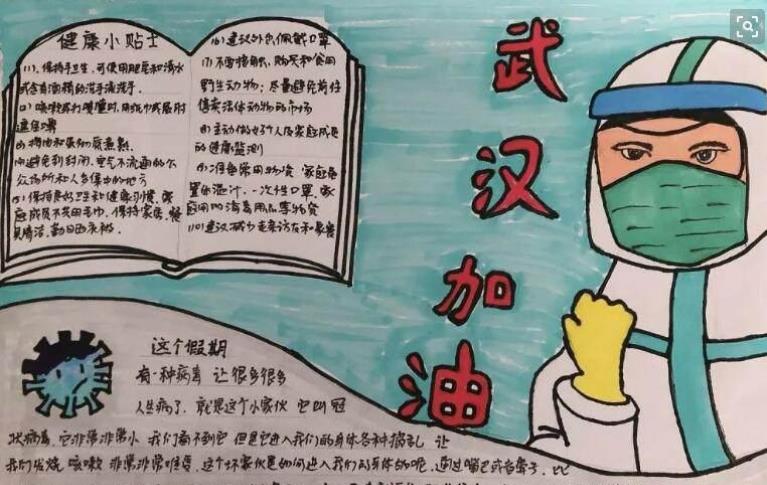 健康小贴士
(1)、保持手卫生,可使用肥皂和清水
或含有酒精的洗手液洗手。
(2) 咳嗽或打喷嚏时,用纸巾或屈肘
遮住口鼻
(3) 将肉和蛋彻底煮熟。
(4) 避免到封闭、空气不流通的公
众场所和人多集中的地方
(5) 保持良好卫生和健康习惯,家
庭成员不共用毛巾,保持家居、餐
具清洁,勤日晒衣被。
(6) 建议外出佩戴口罩
(7) 不要接触、购买和食用
野生动物;尽量避免前往
售卖活体动物的市场
(8) 主动做好个人及家庭成员
的健康监测
(9) 准备常用物资,家庭备
置体温计、一次性口罩、家
庭用的消毒用品等物资
(10) 建议减少走亲访友和聚餐
武
汉
加
油
这个假期
有一种病毒 让很多很多
人生病了,就是这个小家伙 它叫 冠
状病毒,它非常非常小 我们看不到它 但是它进入我们的身体各种捣乱 让
我们发烧 咳嗽 非常非常难受,这个坏家伙是如何进入我们的身体的呢,通过嘴巴或者鼻子,比